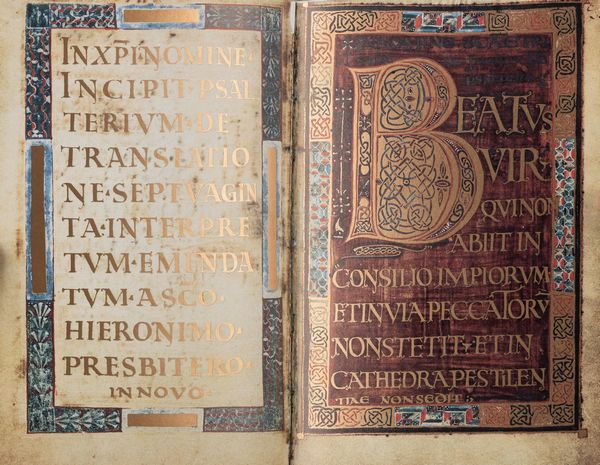 INXP̄INOMINE·
INCIPIT·PSAL
TERIVM·DE
TRANSLATIO
NE·SEPTVAGIN
TA·INTERPRE
TVM·EMENDA
TVM·ASCO·
HIERONIMO·
PRESBITERO·
INNOVO·
BEATVS
VIR·
QVINON
ABIIT IN
CONSILIO,IMPIORVM
ETINVIAPECCATORV̄
NONSTETIT·ETIN
CATHEDRAPESTILEN
TIAE NONSEDIT;